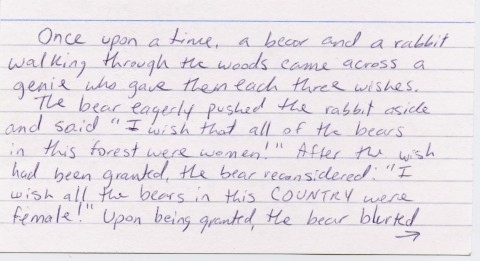 Once upon a time, a bear and a rabbit
walking through the woods came across a
genie who gave them each three wishes.
The bear eagerly pushed the rabbit aside
and said "I wish that all of the bears
in this forest were women!" After the wish
had been granted, the bear reconsidered: "I
wish all the bears in this COUNTRY were
female!" Upon being granted, the bear blurted
→